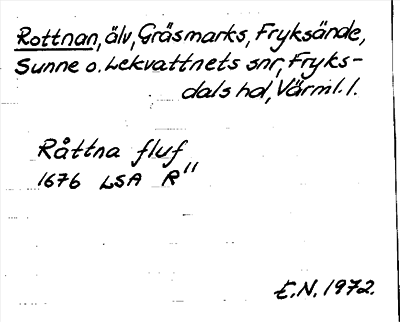 Rottnan, älv, Gräsmarks, Fryksände,
Sunne o. Lekvattnets snr, Fryks-
dals hd, Värml. l.
Råttna fluf
1676 LSA R"
E.N. 1972.